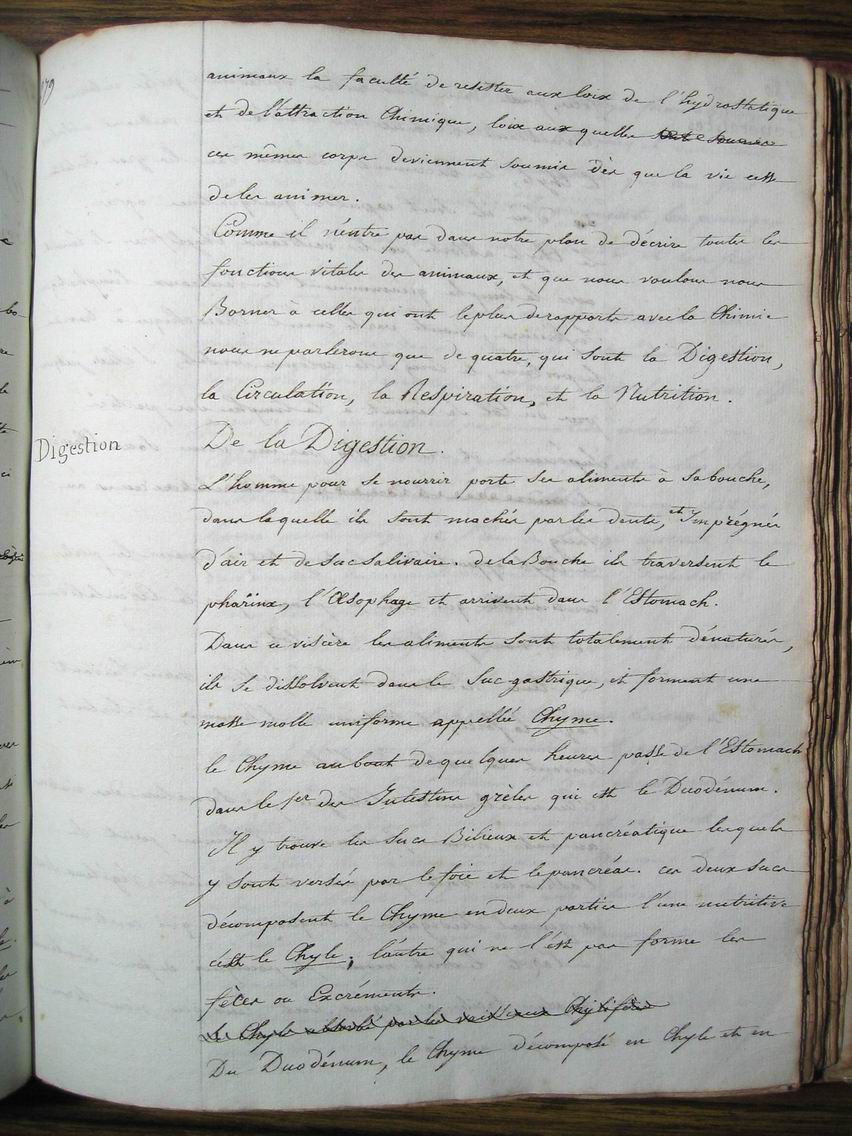 179
animaux la faculté de resister aux loix de l'hydrostatique
et de l'attraction Chimique, loix aux quelles
ces mêmes corps deviennent soumis dès que la vie cesse
de les animer.
Comme il n'entre pas dans notre plan de décrire toutes les
fonctions vitales des animaux, et que nous voulons nous
Borner à celles qui ont le plus de rapports avec la Chimie
nous ne parlerons que de quatre, qui sont la Digestion,
la Circulation, la Respiration, et la Nutrition.
Digestion
De la Digestion.
L'homme pour se nourrir porte ses aliments à sa bouche,
dans laquelle ils sont machés par les dents, et Imprégnés
d'air et de suc salivaire. de la Bouche ils traversent le
pharinx, l'Œsophage et arrivent dans l'Estomach.
Dans ce viscère les aliments sont totalement dénaturés,
ils se dissolvent dans le Suc gastrique, et forment une
masse molle uniforme appellée Chyme.
le Chyme au bout de quelques heures passe de l'Estomach
dans le 1er des Intestins grèles qui est le Duodénum.
Il y trouve les sucs Bilieux et pancréatique lesquels
y sont versés par le foie et le pancréas. ces deux sucs
décomposent le Chyme en deux parties l'une nutritive
c'est le Chyle; l'autre qui ne l'est pas forme les
fèces ou Excréments.
le Chyle absorbé par les vaisseaux Chylifères
Du Duodénum, le Chyme décomposé en Chyle et en